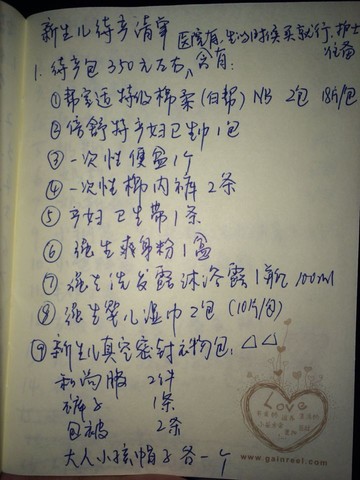 新生儿待产清单 医院有,生的时候买就行,护士
准备
1. 待产包 350元左右,含有:
①帮宝适特级棉柔(白帮) NB 2包 18片/包
②倍舒特产妇卫生巾1包
③一次性便盆1个
④一次性棉内裤 2条
⑤产妇卫生带1条
⑥强生爽身粉1盒
⑦强生洗发露沐浴露1瓶 100ml
⑧强生婴儿湿巾2包 (10片/包)
⑨新生儿真空密封衣物包, △△
和尚服 2件
裤子 1条
包被 2条
大人小孩帽子各一个
Love
www.gainreel.com